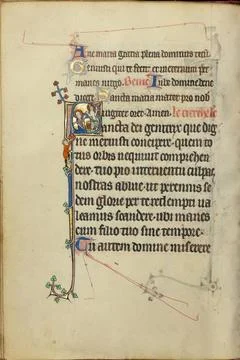 Ave maria gratia plena dominus tecu
Genuisti qui te fecit et in eternum per
manes virgo. Iube domine bene
dicere Sancta maria mater pro nob
iugiter oret. Amen.
Sancta dei genitrix que dig
ne meruisti concipere. quem to
tus orbis nequivit comprehen
dere. tuo pio interventu culpas
nostras ablue. ut perennis se
dem glorie per te redempti va
leamus scandere. ubi manes
cum filio tuo sine tempore.
Tu autem domine miserere